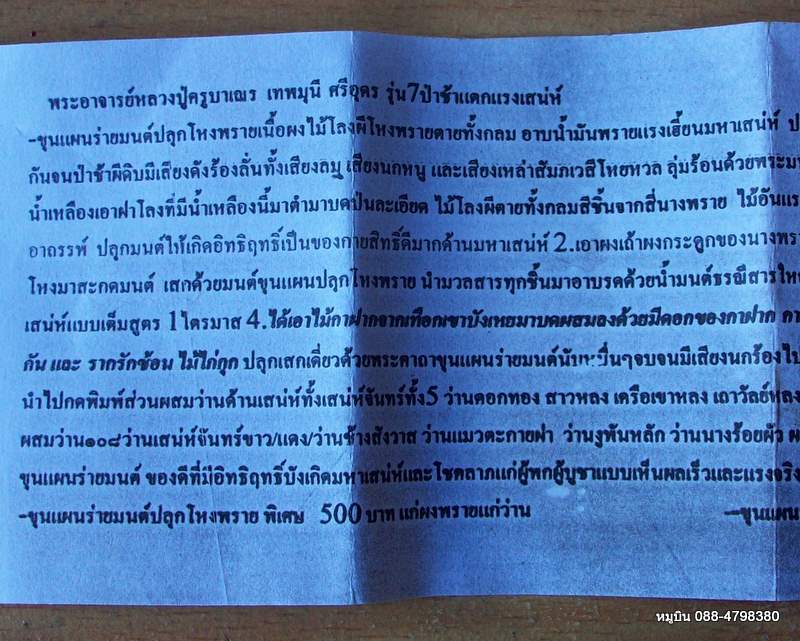 พระอาจารย์หลวงปู่ครูบาเณร เทพมุนี ศรีอุดร รุ่น7ป่าช้าแตกแรงเสน่ห์
-ขุนแผนร่ายมนต์ปลุกโหงพรายเนื้อผงไม้โลงผีโหงพรายตายทั้งกลม อาบน้ำมันพรายแรงเฮี้ยนมหาเสน่ห์ ป
กันจนป่าช้าผีดิบมีเสียงดังร้องลั่นทั้งเสียงลมู เสียงนกหนู และเสียงเหล่าสัมภเวสีโหยหวล ลุ่มร้อนด้วยพระม
น้ำเหลืองเอาฝาโลงที่มีน้ำเหลืองนี้มาตำมาบดป่นละเอียด ไม้โลงผีตายทั้งกลมสี่ชิ้นจากสี่นางพราย ไม้อันแร
อาถรรพ์ ปลุกมนต์ให้เกิดอิทธิฤทธิ์เป็นของกายสิทธิ์ดีมากด้านมหาเสน่ห์ 2.เอาผงเถ้าผงกระดูกของนางพรา
โหงมาสะกดมนต์ เสกด้วยมนต์ขุนแผนปลุกโหงพราย นำมวลสารทุกชิ้นมาอาบรดด้วยน้ำมนต์ธรณีสารให
เสน่ห์แบบเต็มสูตร 1ไตรมาส 4.ได้เอาไม้กาฝากจากเทือกเขาบังเหยมาบดผสมลงด้วยมีดอกของกาฝาก กา
กัน และ รากรักซ้อน ไม้ไก่กุก ปลุกเสกเดี่ยวด้วยพระคาถาขุนแผนร่ายมนต์นับหมื่นๆจบจนมีเสียงนกร้องไป
นำไปกดพิมพ์ส่วนผสมว่านด้านเสน่ห์ทั้งเสน่ห์จันทร์ทั้ง5 ว่านดอกทอง สาวหลง เครือเขาหลง เถาวัลย์หลง
ผสมว่าน๑๐๘ว่านเสน่ห์จันทร์ขาว/แดง/ว่านช้างสังวาส ว่านแมวตะกายฝา ว่านงูพันหลัก ว่านนางร้อยผัว ผ
ขุนแผนร่ายมนต์ ของดีที่มีอิทธิฤทธิ์บังเกิดมหาเสน่ห์และโชคลาภแก่ผู้พกผู้บูชาแบบเห็นผลเร็วและแรงจริง
-ขุนแผนร่ายมนต์ปลุกโหงพราย พิเศษ 500 บาท แก่ผงพรายแก่ว่าน -ขุนแผน
หมูบิน 088-4798380